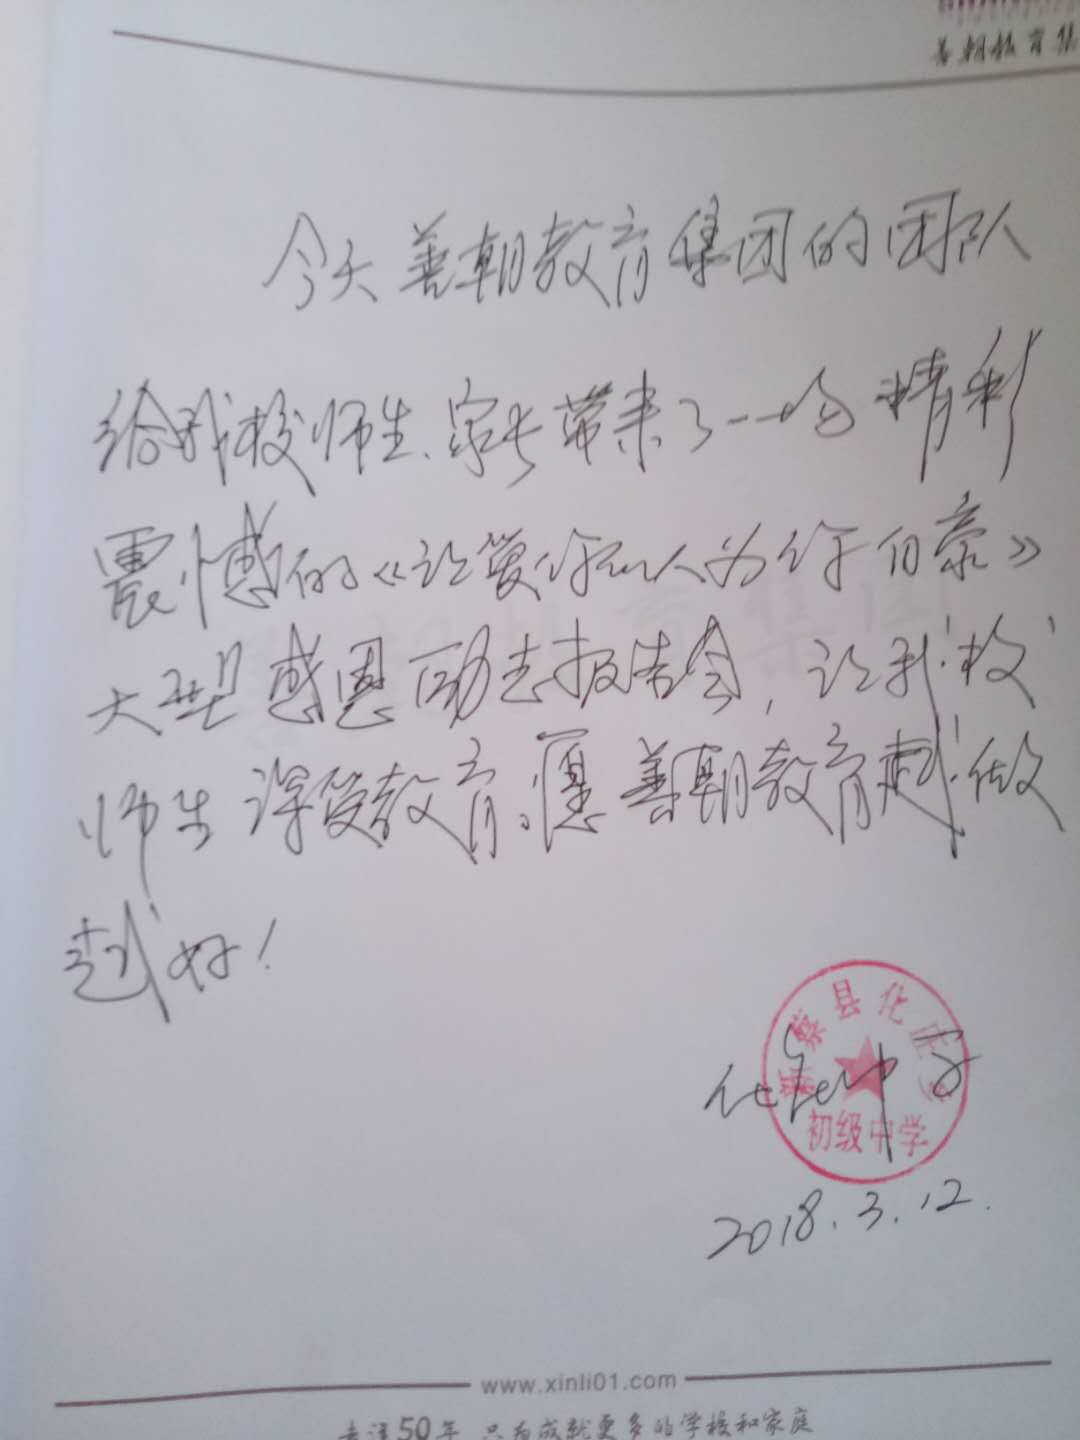 善朝教育集
今天善朝教育集团的团队
给我校师生、家长带来了一场精彩
震憾的《让爱你的人为你自豪》
大型感恩励志报告会，让我校
师生深受教育。愿善朝教育越做
越好！
新蔡县化庄乡
初级中学
化庄中学
2018.3.12.
www.xinli01.com
走过50年 只为成就更多的学校和家庭